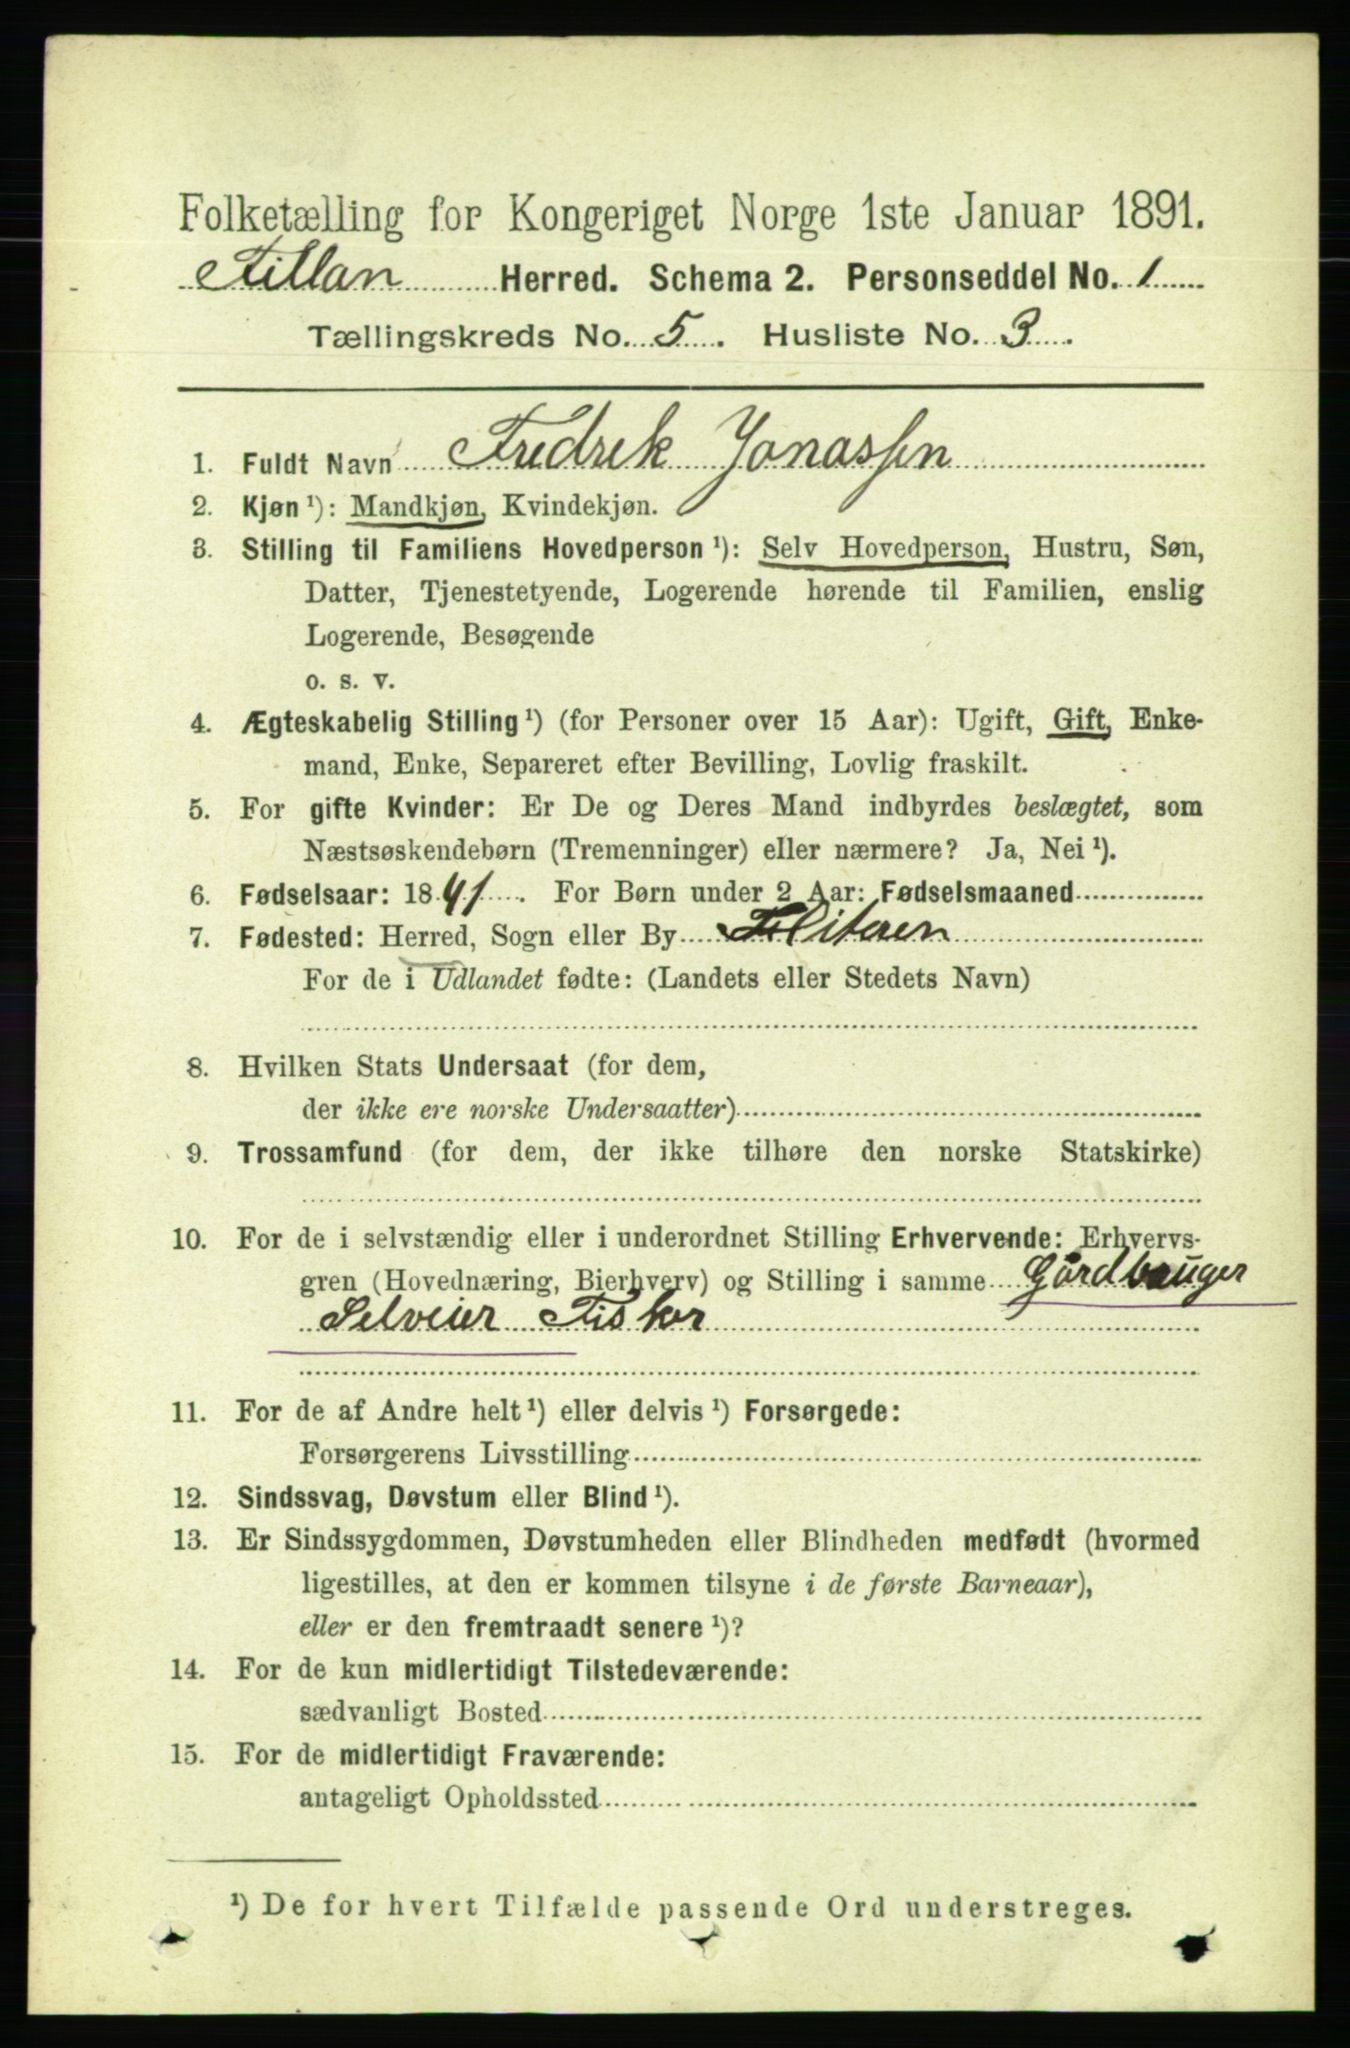 Folketælling for Kongeriget Norge 1ste Januar 1891.
Fillan Herred. Schema 2. Personseddel No. 1
Tællingskreds No. 5. Husliste No. 3.
1. Fuldt Navn Fredrek Jonassen
2. Kjøn ¹): Mandkjøn, Kvindekjøn.
3. Stilling til Familiens Hovedperson ¹): Selv Hovedperson, Hustru, Søn,
Datter, Tjenestetyende, Logerende hørende til Familien, enslig
Logerende, Besøgende
o. s. v.
4. Ægteskabelig Stilling ¹) (for Personer over 15 Aar): Ugift, Gift, Enke-
mand, Enke, Separeret efter Bevilling, Lovlig fraskilt.
5. For gifte Kvinder: Er De og Deres Mand indbyrdes beslægtet, som
Næstsøskendebørn (Tremenninger) eller nærmere? Ja, Nei ¹).
6. Fødselsaar: 1841. For Børn under 2 Aar: Fødselsmaaned
7. Fødested: Herred, Sogn eller By
For de i Udlandet fødte: (Landets eller Stedets Navn)
8. Hvilken Stats Undersaat (for dem,
der ikke ere norske Undersaatter)
9. Trossamfund (for dem, der ikke tilhøre den norske Statskirke)
10. For de i selvstændig eller i underordnet Stilling Erhvervende: Erhvervs-
gren (Hovednæring, Bierhverv) og Stilling i samme Gårdbruger
Selveier Fisker
11. For de af Andre helt ¹) eller delvis ¹) Forsørgede:
Forsørgerens Livsstilling
12. Sindssvag, Døvstum eller Blind ¹).
13. Er Sindssygdommen, Døvstumheden eller Blindheden medfødt (hvormed
ligestilles, at den er kommen tilsyne i de første Barneaar),
eller er den fremtraadt senere ¹)?
14. For de kun midlertidigt Tilstedeværende:
sædvanligt Bosted
15. For de midlertidigt Fraværende:
antageligt Opholdssted
¹) De for hvert Tilfælde passende Ord understreges.